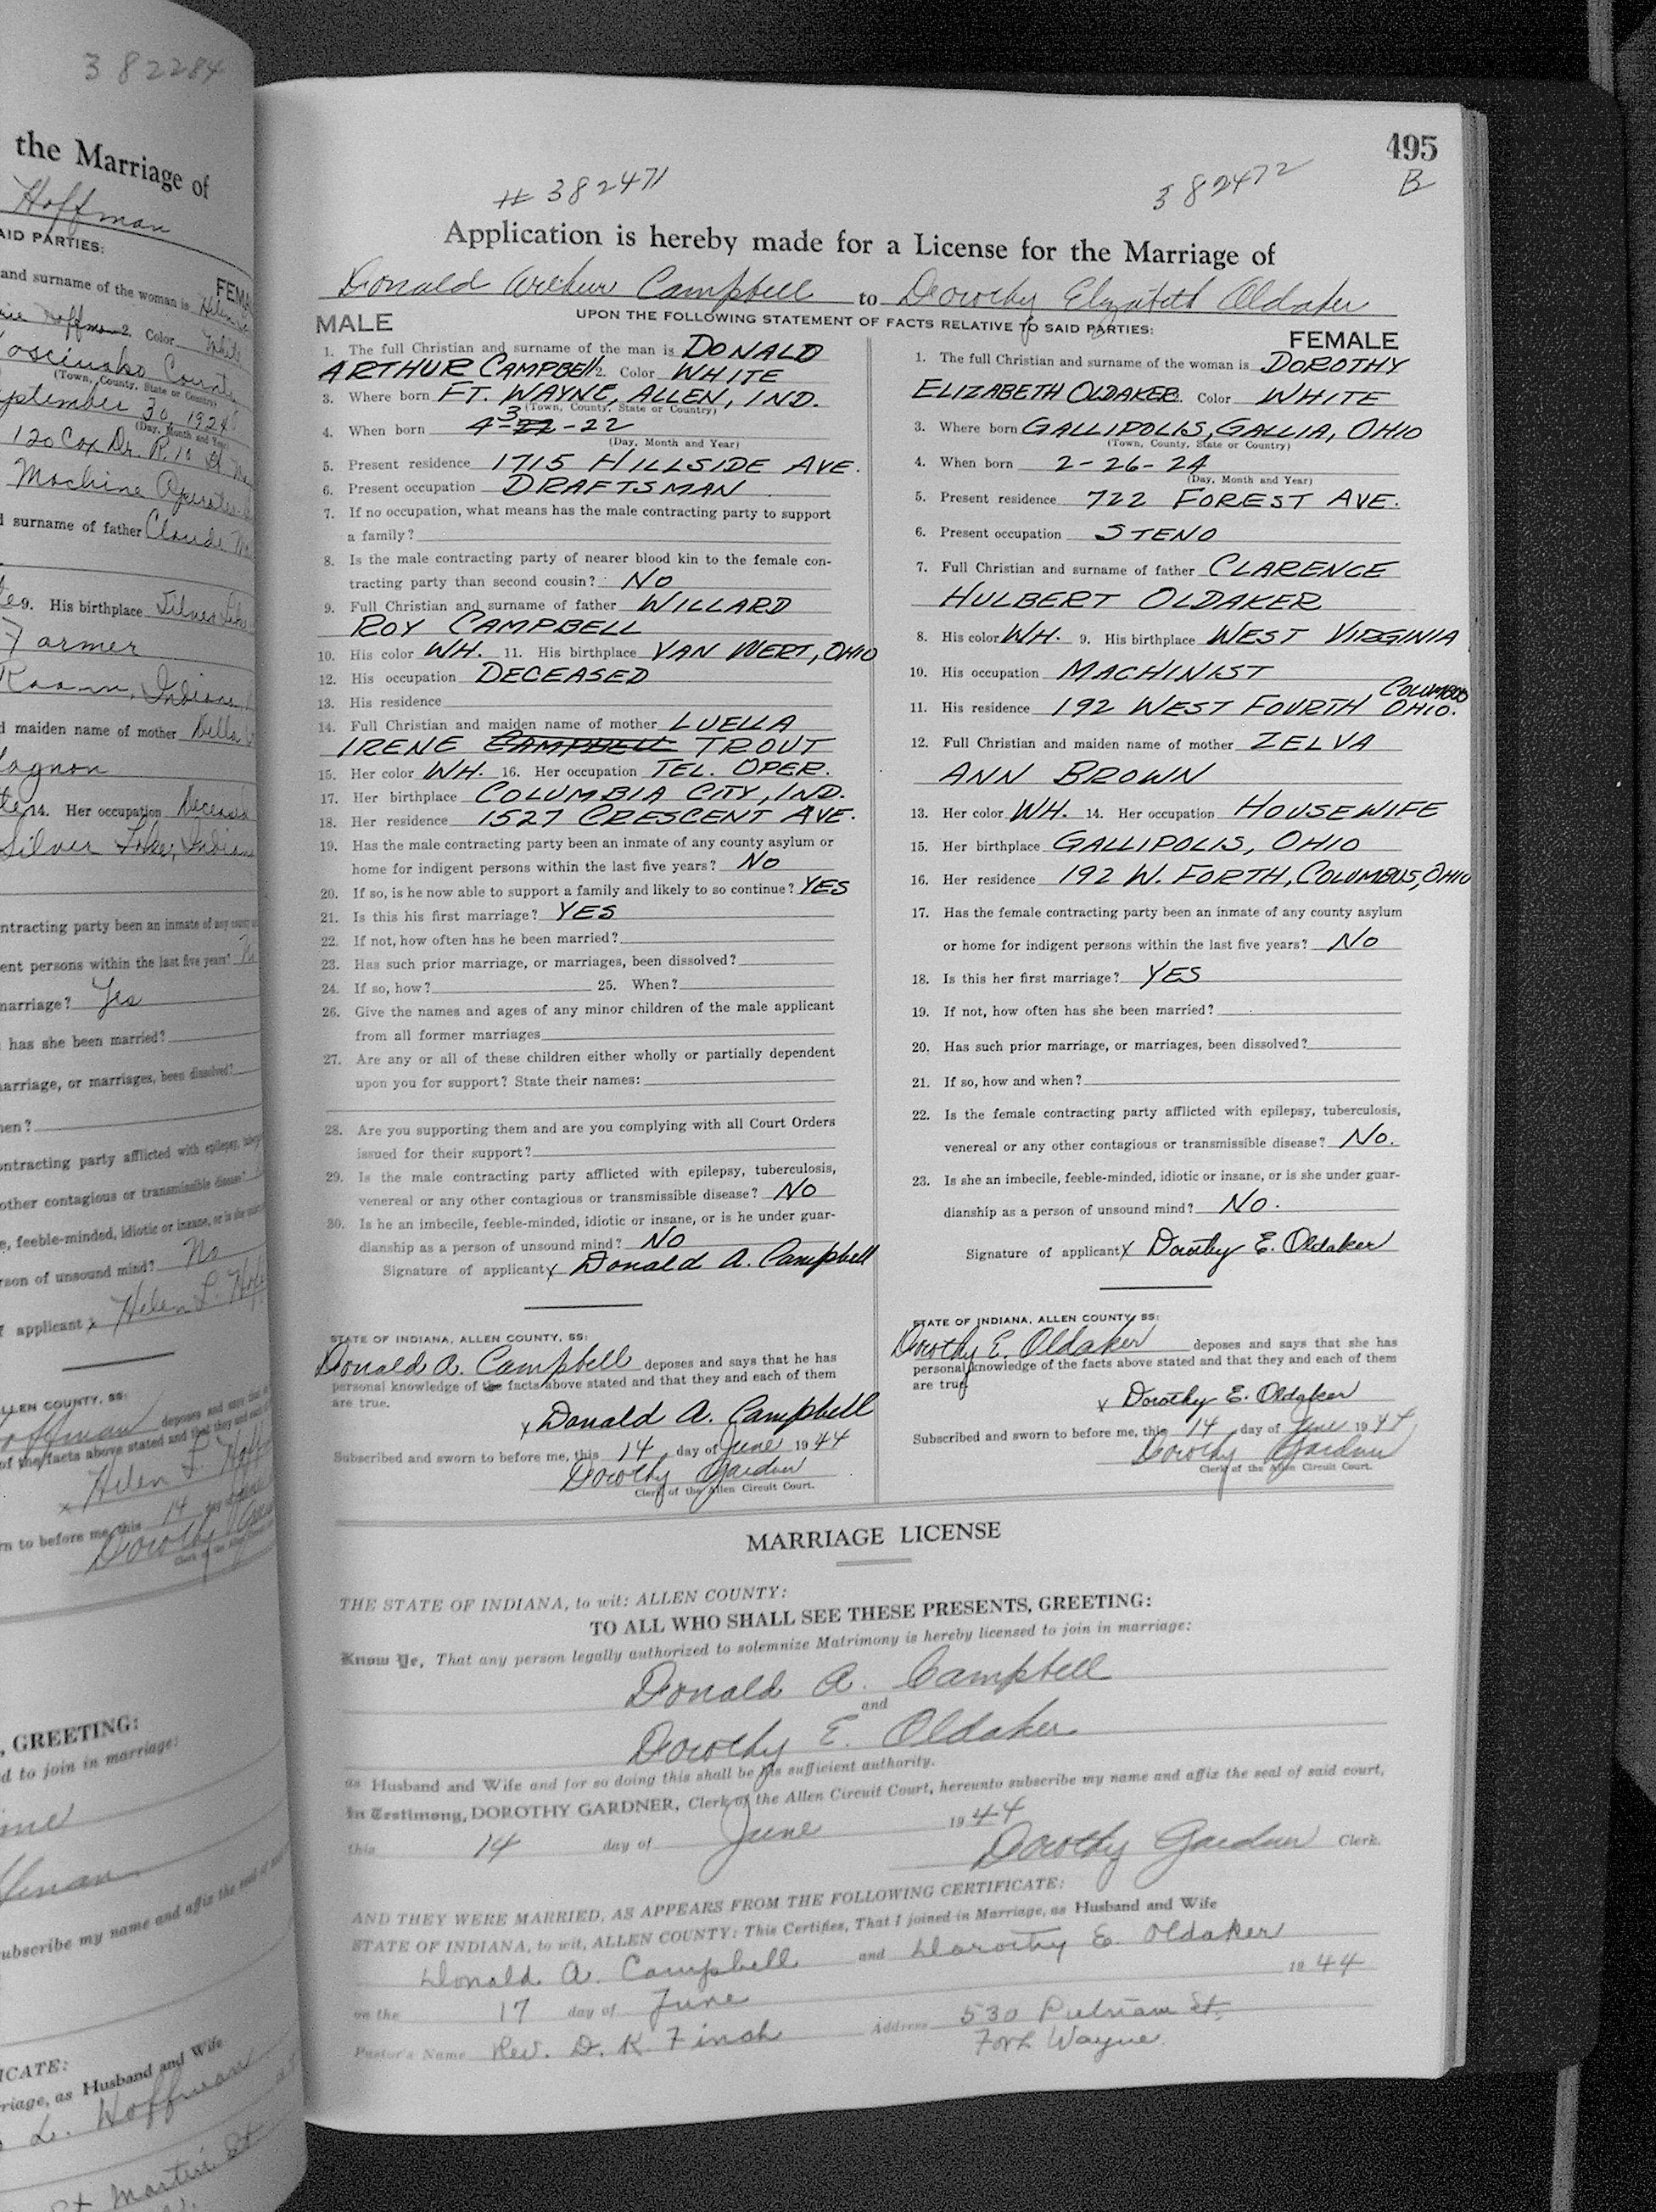 382284
the Marriage of
Hoffman
AID PARTIES:
FEMA
and surname of the woman is Helen
2. Color White
Kosciusko County
(Town, County, State or Country)
September 30, 1924
(Day, Month and Year)
120 Cox Dr. R. 10
Machine Operator
d surname of father Claude
9. His birthplace Silver Lake
Farmer
Roann, Indiana
d maiden name of mother Della
Gagnon
14. Her occupation Deceased
Silver Lake, Indiana
ntracting party been an inmate of any county
ent persons within the last five years? No
marriage? Yes
has she been married?
arriage, or marriages, been dissolved?
hen?
ontracting party afflicted with epilepsy,
other contagious or transmissible disease?
e, feeble-minded, idiotic or insane, or is she
rson of unsound mind? No
f applicant x Helen L. Hof
ALLEN COUNTY, SS:
offman deposes and says that
of the facts above stated and that they and each of
x Helen L. Hoff
rn to before me, this 14
Dorothy
, GREETING:
d to join in marriage:
ubscribe my name and affix the seal of
ICATE:
rriage, as Husband and Wife
L. Hoffman
St Martin St
495
B
# 382471 382472
Application is hereby made for a License for the Marriage of
Donald Arthur Campbell to Dorothy Elizabeth Oldaker
UPON THE FOLLOWING STATEMENT OF FACTS RELATIVE TO SAID PARTIES:
MALE
1. The full Christian and surname of the man is DONALD
ARTHUR CAMPBELL 2. Color WHITE
3. Where born FT. WAYNE, ALLEN, IND.
(Town, County, State or Country)
4. When born 4-3 22-22
(Day, Month and Year)
5. Present residence 1715 HILLSIDE AVE.
6. Present occupation DRAFTSMAN
7. If no occupation, what means has the male contracting party to support
a family?
8. Is the male contracting party of nearer blood kin to the female con-
tracting party than second cousin? NO
9. Full Christian and surname of father WILLARD
ROY CAMPBELL
10. His color WH. 11. His birthplace VAN WERT, OHIO
12. His occupation DECEASED
13. His residence
14. Full Christian and maiden name of mother LUELLA
IRENE CAMPBELL TROUT
15. Her color WH. 16. Her occupation TEL. OPER.
17. Her birthplace COLUMBIA CITY, IND.
18. Her residence 1527 CRESCENT AVE.
19. Has the male contracting party been an inmate of any county asylum or
home for indigent persons within the last five years? NO
20. If so, is he now able to support a family and likely to so continue? YES
21. Is this his first marriage? YES
22. If not, how often has he been married?
23. Has such prior marriage, or marriages, been dissolved?
24. If so, how? 25. When?
26. Give the names and ages of any minor children of the male applicant
from all former marriages
27. Are any or all of these children either wholly or partially dependent
upon you for support? State their names:
28. Are you supporting them and are you complying with all Court Orders
issued for their support?
29. Is the male contracting party afflicted with epilepsy, tuberculosis,
venereal or any other contagious or transmissible disease? NO
30. Is he an imbecile, feeble-minded, idiotic or insane, or is he under guar-
dianship as a person of unsound mind? NO
Signature of applicant x Donald A. Campbell
STATE OF INDIANA, ALLEN COUNTY, SS:
Donald A. Campbell deposes and says that he has
personal knowledge of the facts above stated and that they and each of them
are true.
x Donald A. Campbell
Subscribed and sworn to before me, this 14 day of June 1944
Dorothy Gardner
Clerk of the Allen Circuit Court.
FEMALE
1. The full Christian and surname of the woman is DOROTHY
ELIZABETH OLDAKER 2. Color WHITE
3. Where born GALLIPOLIS, GALLIA, OHIO
(Town, County, State or Country)
4. When born 2-26-24
(Day, Month and Year)
5. Present residence 722 FOREST AVE.
6. Present occupation STENO
7. Full Christian and surname of father CLARENCE
HULBERT OLDAKER
8. His color WH. 9. His birthplace WEST VIRGINIA
10. His occupation MACHINIST
11. His residence 192 WEST FOURTH COLUMBUS OHIO.
12. Full Christian and maiden name of mother ZELVA
ANN BROWN
13. Her color WH. 14. Her occupation HOUSEWIFE
15. Her birthplace GALLIPOLIS, OHIO
16. Her residence 192 W. FORTH, COLUMBUS, OHIO
17. Has the female contracting party been an inmate of any county asylum
or home for indigent persons within the last five years? NO
18. Is this her first marriage? YES
19. If not, how often has she been married?
20. Has such prior marriage, or marriages, been dissolved?
21. If so, how and when?
22. Is the female contracting party afflicted with epilepsy, tuberculosis,
venereal or any other contagious or transmissible disease? NO.
23. Is she an imbecile, feeble-minded, idiotic or insane, or is she under guar-
dianship as a person of unsound mind? NO.
Signature of applicant x Dorothy E. Oldaker
STATE OF INDIANA, ALLEN COUNTY, SS:
Dorothy E. Oldaker deposes and says that she has
personal knowledge of the facts above stated and that they and each of them
are true.
x Dorothy E. Oldaker
Subscribed and sworn to before me, this 14 day of June 1944
Dorothy Gardner
Clerk of the Allen Circuit Court.
MARRIAGE LICENSE
THE STATE OF INDIANA, to wit: ALLEN COUNTY:
TO ALL WHO SHALL SEE THESE PRESENTS, GREETING:
Know Ye, That any person legally authorized to solemnize Matrimony is hereby licensed to join in marriage:
Donald A. Campbell
and
Dorothy E. Oldaker
as Husband and Wife and for so doing this shall be his sufficient authority.
In Testimony, DOROTHY GARDNER, Clerk of the Allen Circuit Court, hereunto subscribe my name and affix the seal of said court,
this 14 day of June 1944
Dorothy Gardner Clerk.
AND THEY WERE MARRIED, AS APPEARS FROM THE FOLLOWING CERTIFICATE:
STATE OF INDIANA, to wit, ALLEN COUNTY: This Certifies, That I joined in Marriage, as Husband and Wife
Donald A. Campbell and Dorothy E. Oldaker
on the 17 day of June 1944
Pastor's Name Rev. D. K. Finch Address 530 Putnam St.
Fort Wayne